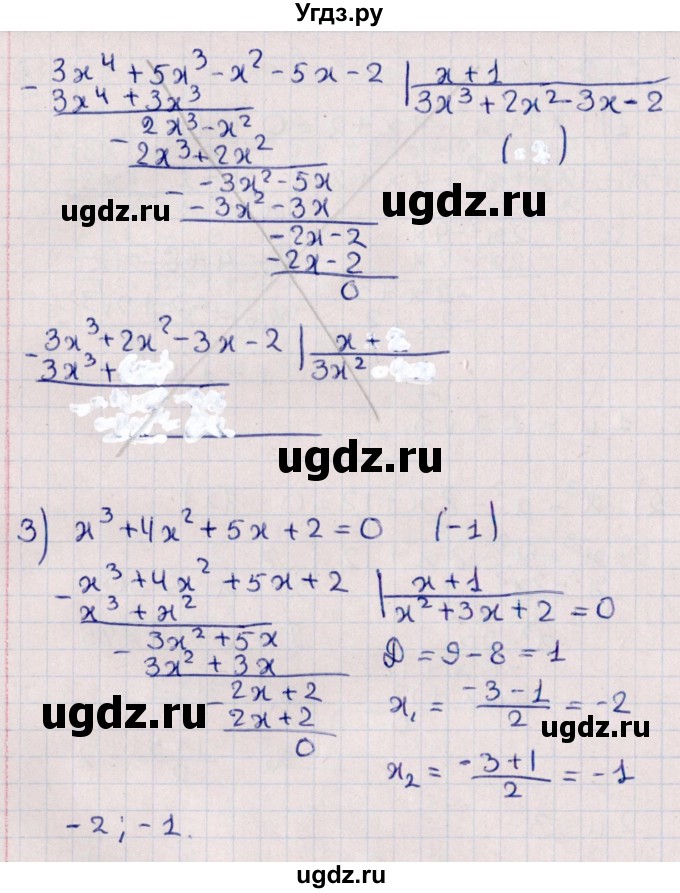 Угдз.ру
- 3x⁴ + 5x³ - x² - 5x - 2 | x + 1
3x⁴ + 3x³ 3x³ + 2x² - 3x - 2
2x³ - x²
- 2x³ + 2x² ( )
- -3x² - 5x
-3x² - 3x
ugdz.ru ugdz.ru
-2x - 2
-2x - 2
0
- 3x³ + 2x² - 3x - 2 | x +
3x³ + 3x²
ugdz.ru
3) x³ + 4x² + 5x + 2 = 0 (-1)
- x³ + 4x² + 5x + 2 | x + 1
x³ + x² x² + 3x + 2 = 0
- 3x² + 5x
3x² + 3x D = 9 - 8 = 1
- 2x + 2 x₁ = (-3 - 1)/2 = -2
ugdz.ru 2x + 2 ugdz.ru
0 x₂ = (-3 + 1)/2 = -1
-2; -1.
ugdz.ru